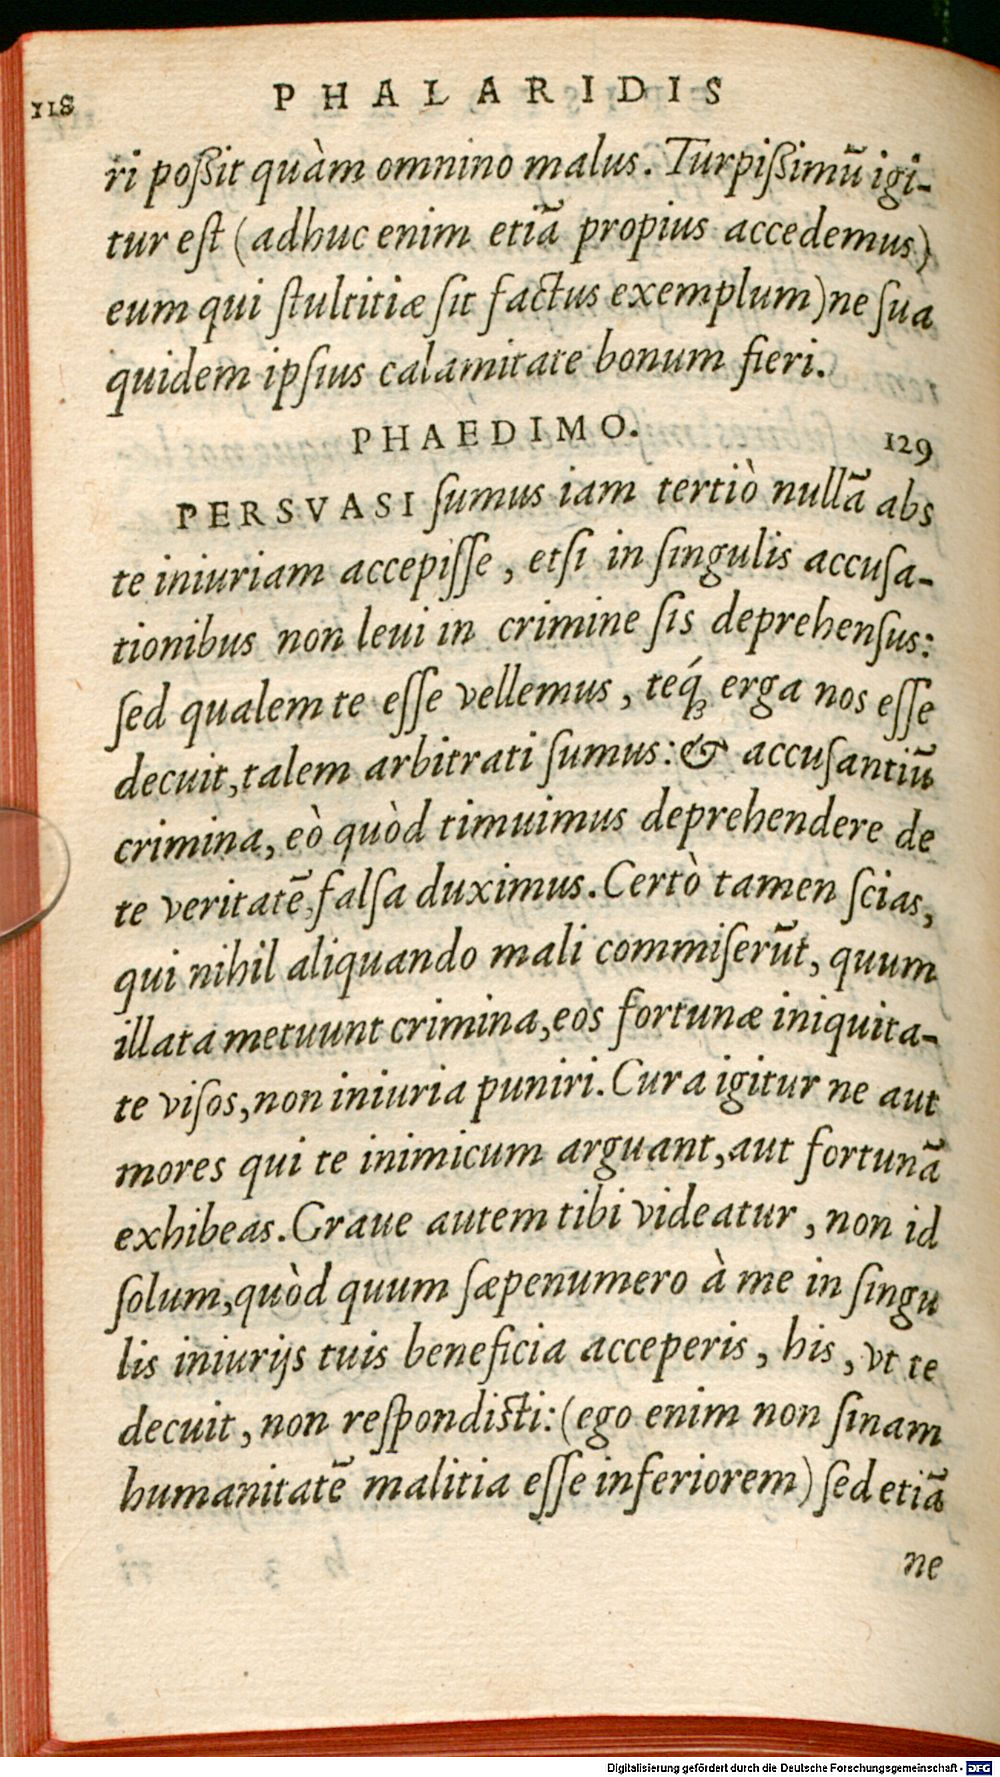 118 PHALARIDIS
ri poßit quàm omnino malus. Turpißimū igi-
tur est (adhuc enim etiā propius accedemus)
eum qui ſtultitiæ ſit factus exemplum) ne ſua
quidem ipſius calamitate bonum fieri.
PHAEDIMO. 129
PERSVASI ſumus iam tertiò nullā abs
te iniuriam accepiſſe, etſi in ſingulis accuſa-
tionibus non leui in crimine ſis deprehenſus:
ſed qualem te eſſe vellemus, teq́; erga nos eſſe
decuit, talem arbitrati ſumus: & accuſantiū
crimina, eò quòd timuimus deprehendere de
te veritatē, falſa duximus. Certò tamen ſcias,
qui nihil aliquando mali commiſerūt, quum
illata metuunt crimina, eos fortunæ iniquita-
te viſos, non iniuria puniri. Cura igitur ne aut
mores qui te inimicum arguant, aut fortunā
exhibeas. Graue autem tibi videatur, non id
ſolum, quòd quum ſæpenumero à me in ſingu
lis iniurijs tuis beneficia acceperis, his, vt te
decuit, non reſpondisti: (ego enim non ſinam
humanitatē malitia eſſe inferiorem) ſed etiā
ne
Digitalisierung gefördert durch die Deutsche Forschungsgemeinschaft - DFG